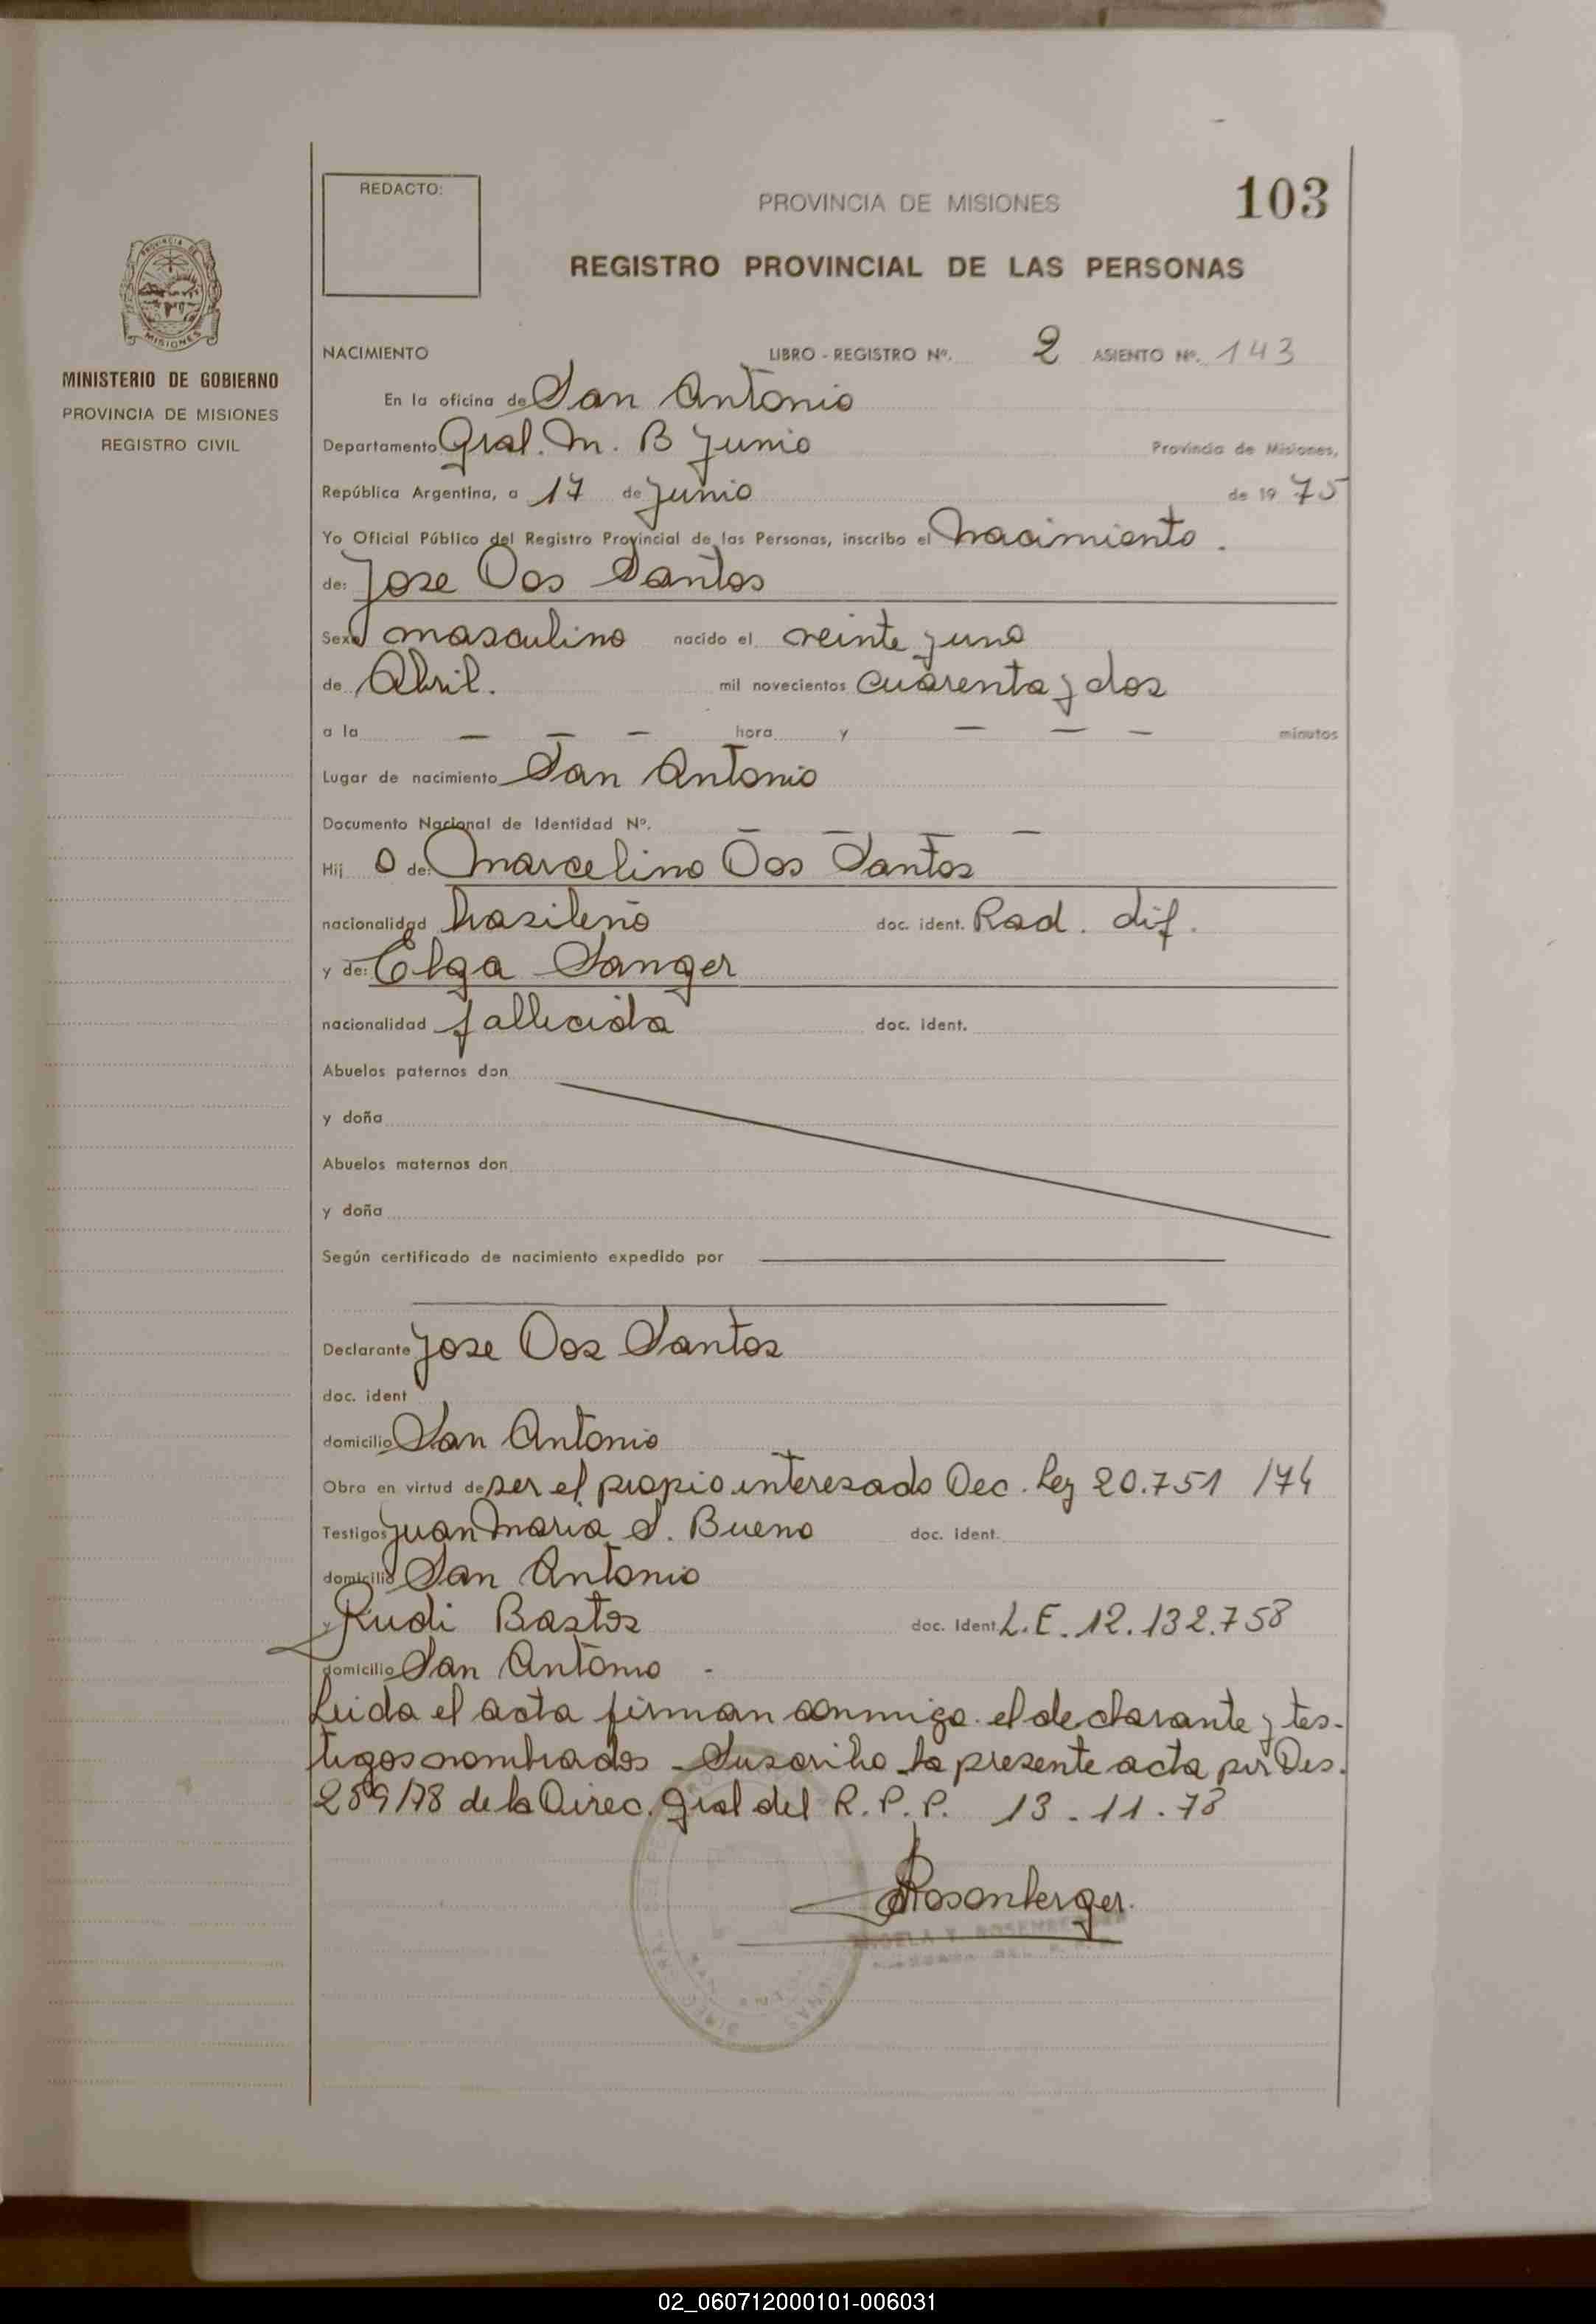 REDACTO:
PROVINCIA DE MISIONES
103
REGISTRO PROVINCIAL DE LAS PERSONAS
PROVINCIA DE
MISIONES
MINISTERIO DE GOBIERNO
PROVINCIA DE MISIONES
REGISTRO CIVIL
NACIMIENTO LIBRO - REGISTRO Nº. 2 ASIENTO Nº. 143
En la oficina de San Antonio
Departamento Gral. M. B Junio Provincia de Misiones,
República Argentina, a 17 de Junio de 19 75
Yo Oficial Público del Registro Provincial de las Personas, inscribo el nacimiento.
de: Jose Dos Santos
Sexo masculino nacido el veinte y uno
de Abril. mil novecientos cuarenta y dos
a la — — — hora y — — — minutos
Lugar de nacimiento San Antonio
Documento Nacional de Identidad Nº. — — — —
Hij o de: Marcelino Dos Santos
nacionalidad brasileño doc. ident. Rad. dif.
y de: Elga Sanger
nacionalidad fallecida doc. ident.
Abuelos paternos don
y doña
Abuelos maternos don
y doña
Según certificado de nacimiento expedido por
Declarante Jose Dos Santos
doc. ident
domicilio San Antonio
Obra en virtud de ser el propio interesado Dec. Ley 20.751 /74
Testigos Juan Maria S. Bueno doc. ident.
domicilio San Antonio
y Rudi Bastos doc. Ident L.E. 12.132.758
domicilio San Antonio -
Leida el acta firman conmigo el declarante y tes-
tigos nombrados - Suscribo la presente acta por Des.
289/78 de la Direc. Gral del R. P. P. 13-11-78
Rosenberger.
02_060712000101-006031